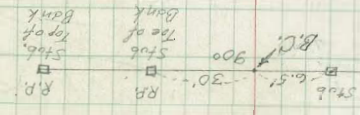 B.C.
Stub
6.5'
30'
90°
R.P.
Stub
Toe of
Bank
R.P.
Stub,
Top of
Bank